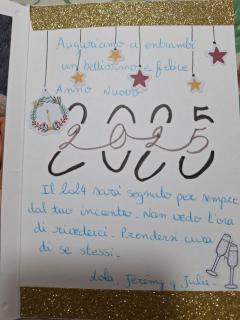 Auguriamo a entrambi
un bellissimo e felice
Anno Nuovo
2025
2025
Il 2024 sarà segnato per sempre
dal tuo incanto. Non vedo l'ora
di rivederci. Prendersi cura
di se stessi.
Lola, Jeremy y Julie